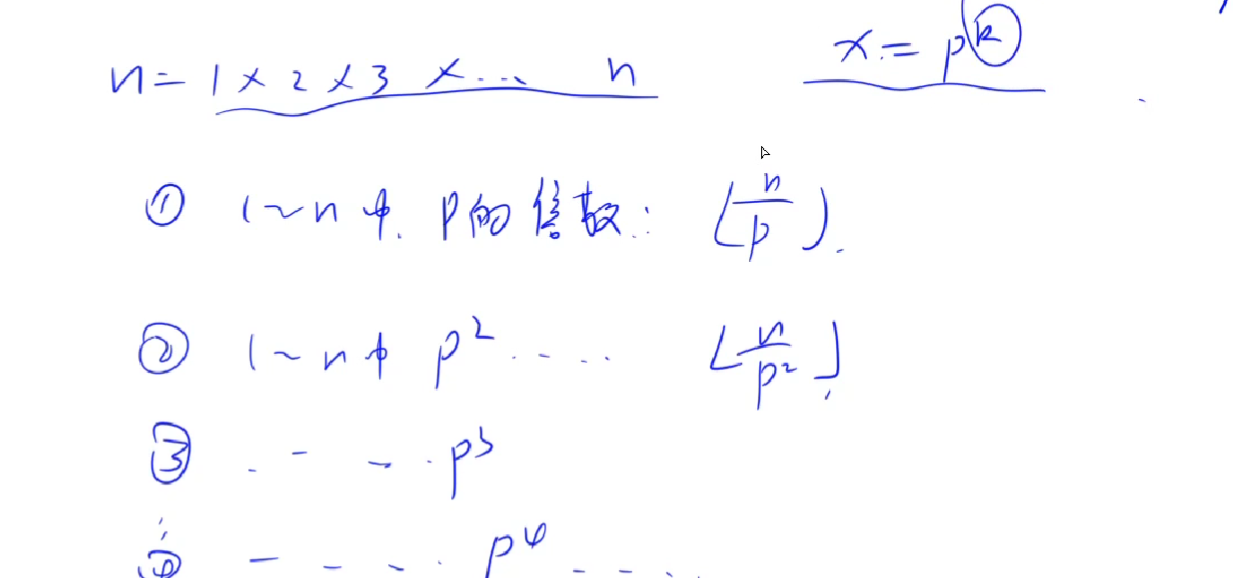 n = 1 × 2 × 3 × ... n
x = p^k
① 1~n中. p的倍数: ⌊n/p⌋.
② 1~n中 p² ..... ⌊n/p²⌋
③ . - - . p³
④ - - - . p⁴ - - .